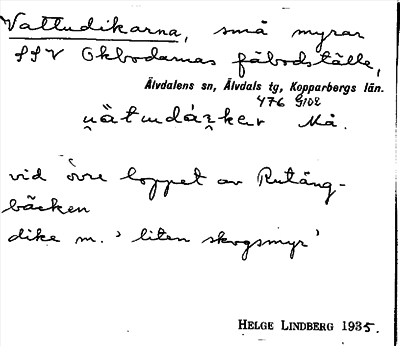 Vattudikarna, små myrar
SSV Okbodarnas fäbodställe,
Älvdalens sn, Älvdals tg, Kopparbergs län.
476 9102
Må.
vid övre loppet av Rutäng-
bäcken
dike m. 'liten skogsmyr'
HELGE LINDBERG 1935.